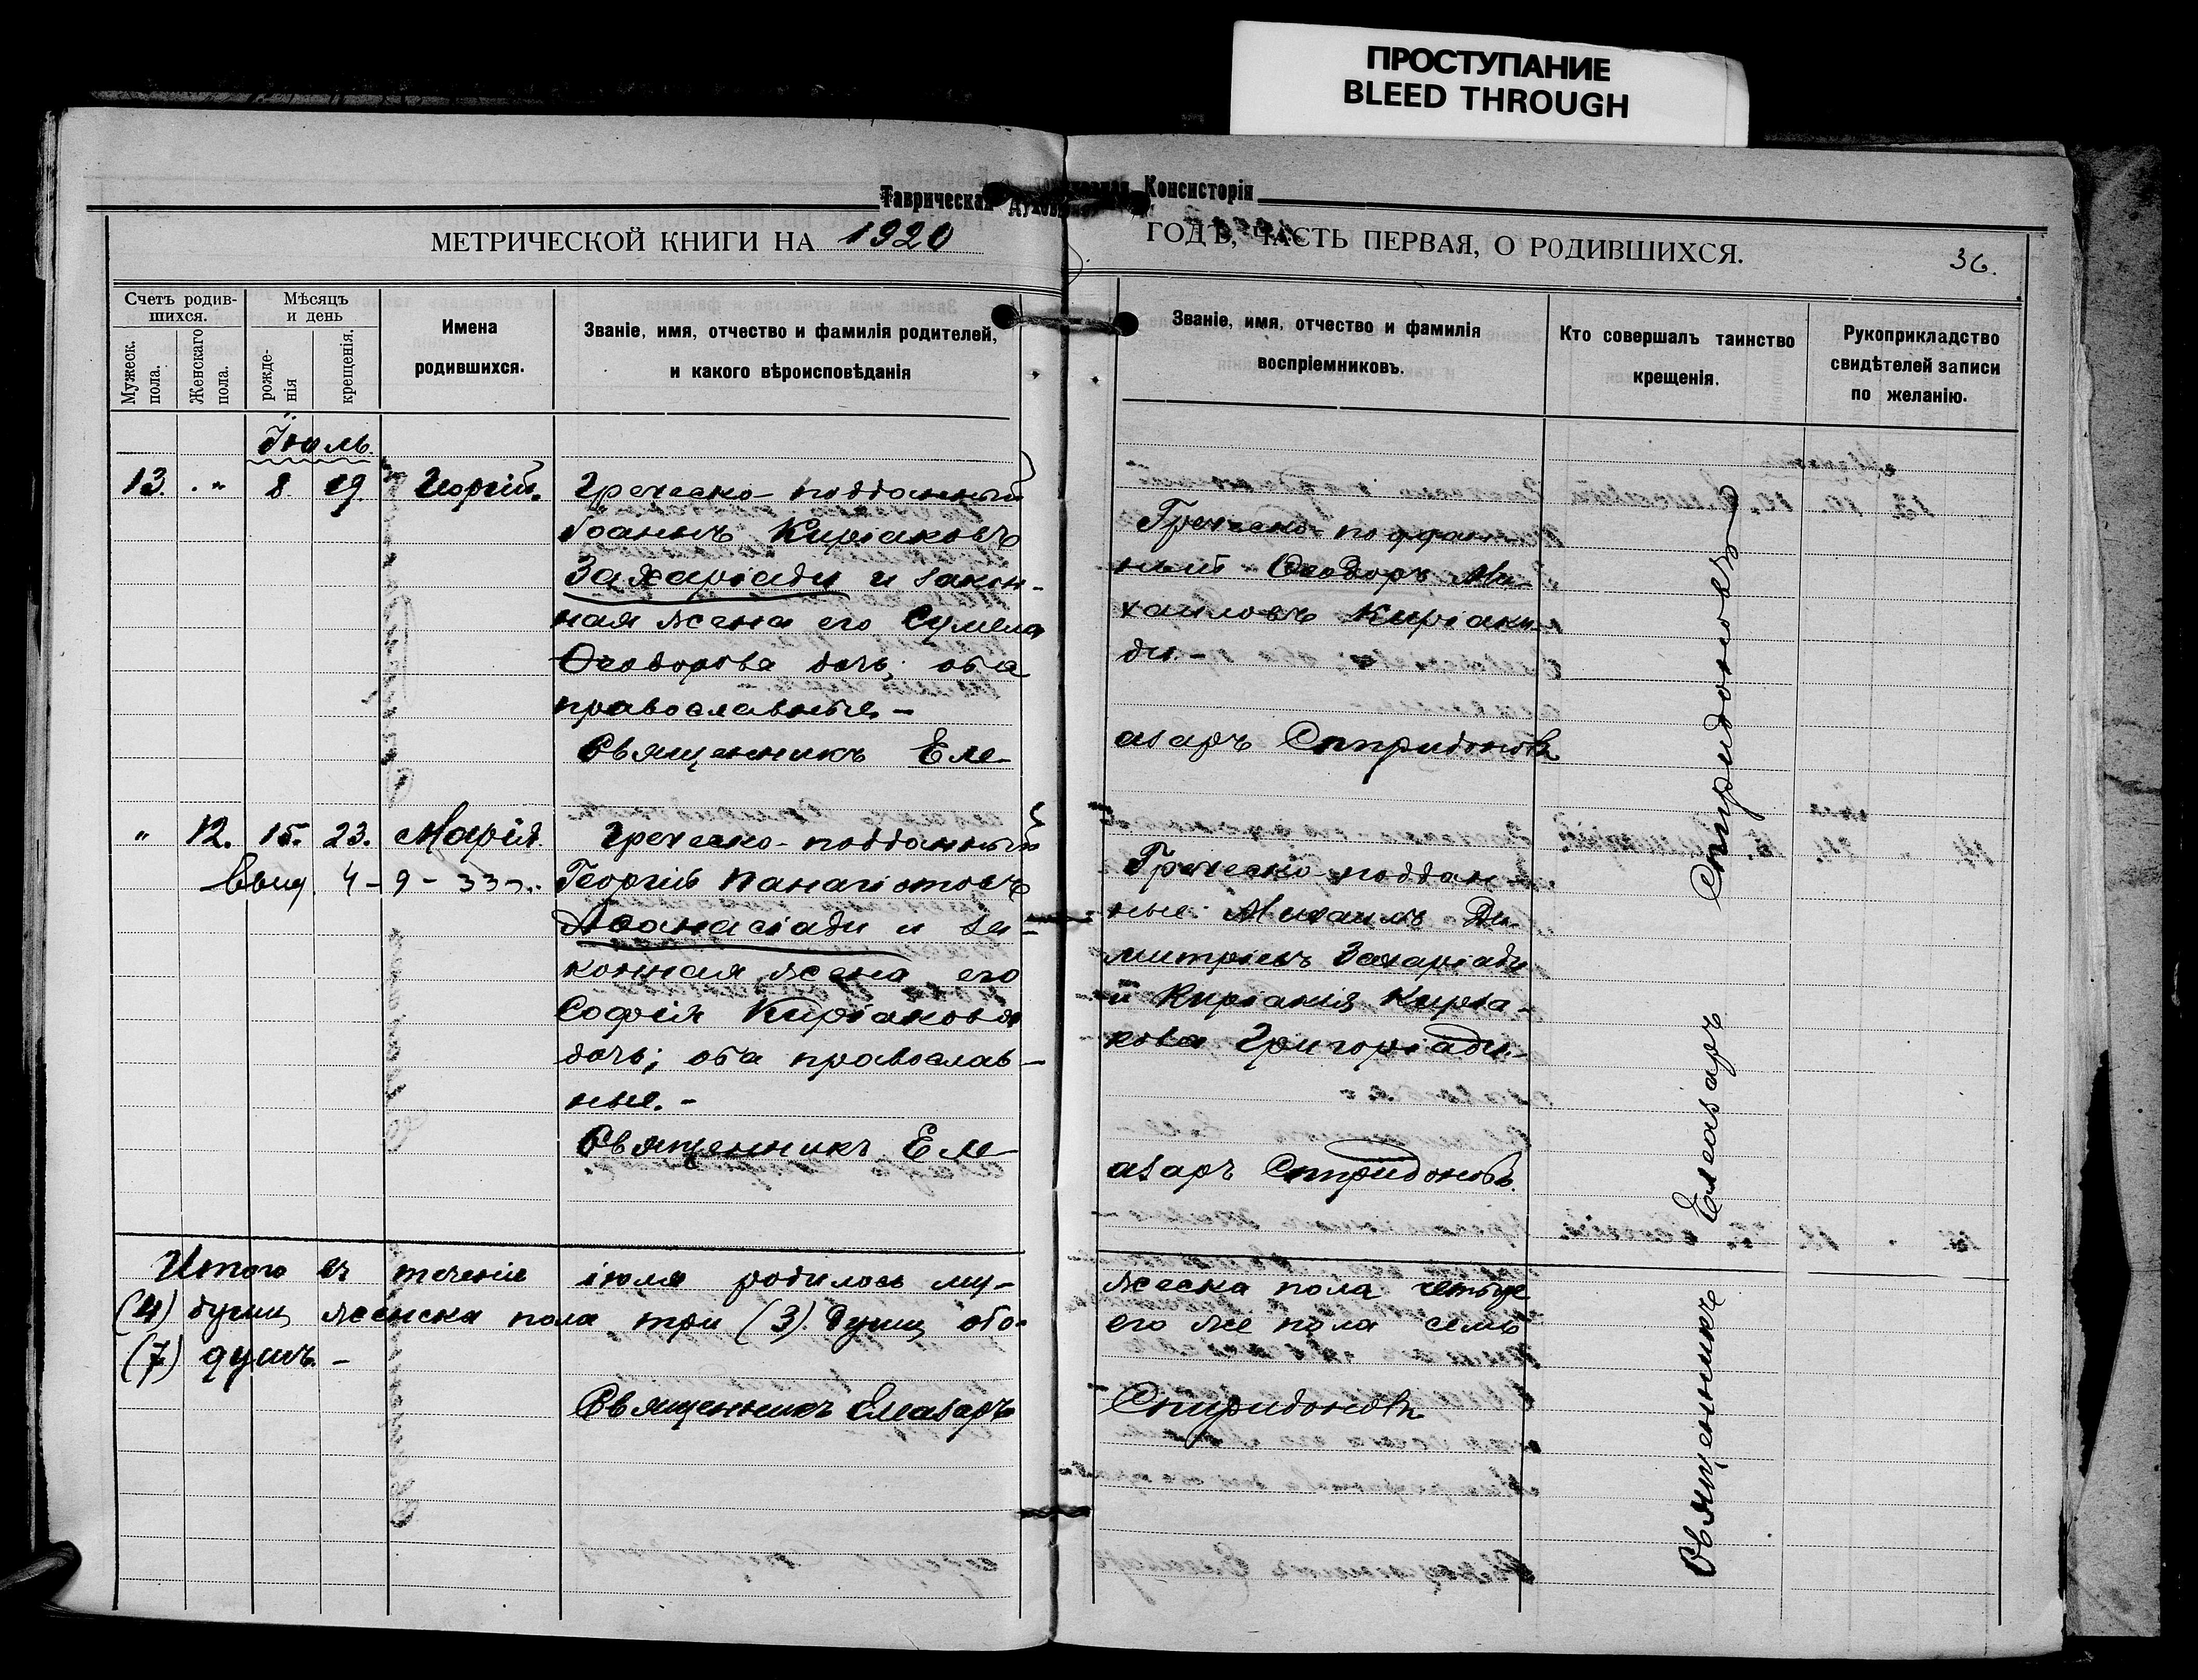 ПРОСТУПАНИЕ
BLEED THROUGH
Таврическая Духовная Консисторія
МЕТРИЧЕСКОЙ КНИГИ НА 1920
ГОДЪ, ЧАСТЬ ПЕРВАЯ, О РОДИВШИХСЯ.
36.
Счетъ родив-
шихся.
Мужеск.
пола.
Женскаго
пола.
Мѣсяцъ
и день
рожде-
нія
крещенія.
Имена
родившихся.
Званіе, имя, отчество и фамилія родителей,
и какого вѣроисповѣданія
Званіе, имя, отчество и фамилія
воспріемниковъ.
Кто совершалъ таинство
крещенія.
Рукоприкладство
свидѣтелей записи
по желанію.
Іюль.
13. " 8 19 Георгій. Греческо-подданный
Іоаннъ Киріаковъ
Захаріади и закон-
ная жена его Сумела
Ѳеодорова дочь; оба
православные. -
Священникъ Еле-
Греческо-поддан-
ный Ѳеодоръ Ми-
хаиловъ Киріаки-
ди. -
азаръ Спиридоновъ
" 12. 15. 23. Марія Греческо-подданный
Выд. 4-9-33 г. Георгій Панагіотовъ
Аѳанасіади и за-
конная жена его
Софія Киріакова
дочь; оба православ-
ные. -
Священникъ Еле-
Греческо-поддан-
ные: Михаилъ Ди-
митріевъ Захаріади
и Киріакія Киріа-
кова Григоріади. -
азаръ Спиридоновъ.
Священникъ Елеазаръ Спиридоновъ
Итого въ теченіе іюля родилось му-
жеска пола четыре
(4) души, женска пола три (3) души, обо-
его же пола семь
(7) душъ. -
Священникъ Елеазаръ
Спиридоновъ